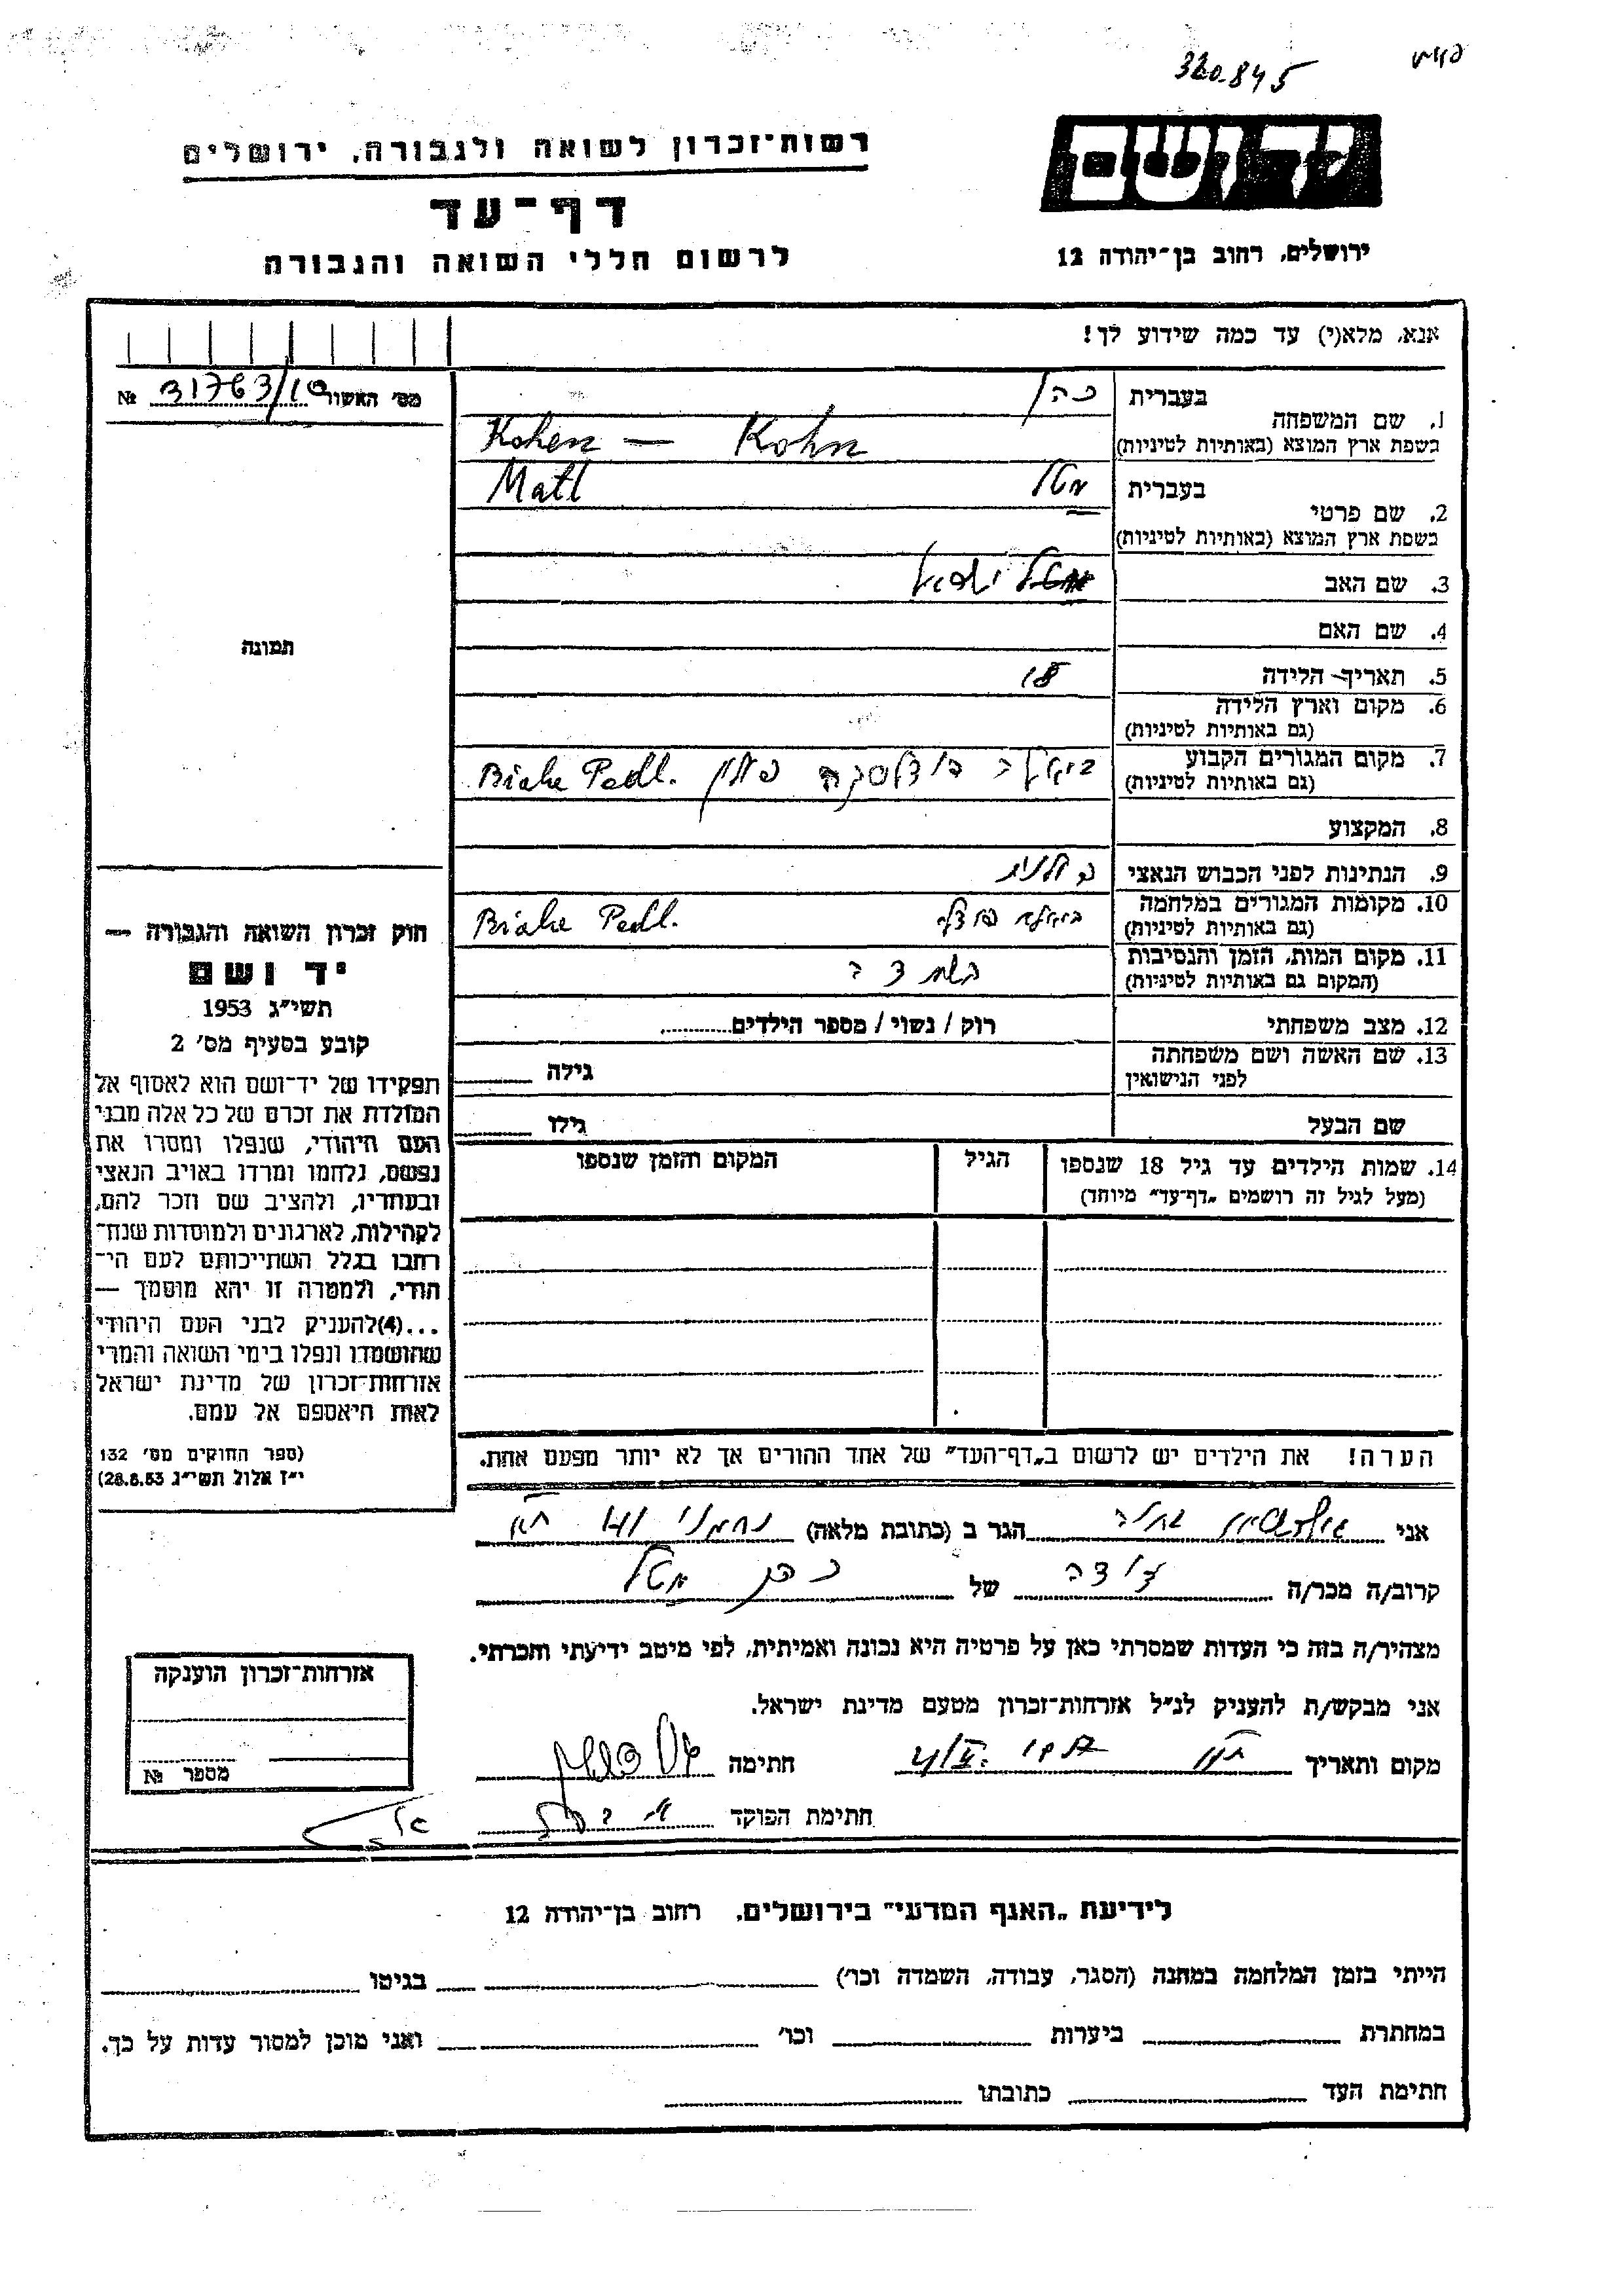 320.845
רשות־זכרון לשואה ולגבורה, ירושלים
יד ושם
דף־עד
לרשום חללי השואה והגבורה
ירושלים, רחוב בן־יהודה 12
אנא, מלא(י) עד כמה שידוע לך!
מס׳ האשור 31763/10 №
1. שם המשפחה
בעברית כהן
בשפת ארץ המוצא (באותיות לטיניות) Kohen — Kohn
2. שם פרטי
בעברית מטל Matl
בשפת ארץ המוצא (באותיות לטיניות)
3. שם האב
4. שם האם
5. תאריך הלידה 18
6. מקום וארץ הלידה
(גם באותיות לטיניות)
7. מקום המגורים הקבוע
(גם באותיות לטיניות) ביאלה פודלסקה פולין Biake Podl.
8. המקצוע
9. הנתינות לפני הכבוש הנאצי פולנית
10. מקומות המגורים במלחמה
(גם באותיות לטיניות) ביאלה פודל Biake Podl.
11. מקום המות, הזמן והנסיבות
(המקום גם באותיות לטיניות) בשמדה
12. מצב משפחתי רוק / נשוי / מספר הילדים
13. שם האשה ושם משפחתה
לפני הנישואין גילה
שם הבעל גילו
14. שמות הילדים עד גיל 18 שנספו הגיל המקום והזמן שנספו
(מעל לגיל זה רושמים „דף־עד״ מיוחד)
הערה! את הילדים יש לרשום ב„דף־העד״ של אחד ההורים אך לא יותר מפעם אחת.
תמונה
חוק זכרון השואה והגבורה —
יד ושם
תשי״ג 1953
קובע בסעיף מס׳ 2
תפקידו של יד־ושם הוא לאסוף אל
המולדת את זכרם של כל אלה מבני
העם היהודי, שנפלו ומסרו את
נפשם, נלחמו ומרדו באויב הנאצי
ובעוזריו, ולהציב שם וזכר להם,
לקהילות, לארגונים ולמוסדות שנח־
רבו בגלל השתייכותם לעם הי־
הודי, ולמטרה זו יהא מוסמך —
...(4)להעניק לבני העם היהודי
שהושמדו ונפלו בימי השואה והמרי
אזרחות־זכרון של מדינת ישראל
לאות היאספם אל עמם.
(ספר החוקים מס׳ 132
י״ז אלול תשי״ג 28.8.53)
אני הגר ב (כתובת מלאה) נחמני
קרוב/ה מכר/ה דודה של כהן מטל
מצהיר/ה בזה כי העדות שמסרתי כאן על פרטיה היא נכונה ואמיתית, לפי מיטב ידיעתי והכרתי.
אני מבקש/ת להעניק לנ״ל אזרחות־זכרון מטעם מדינת ישראל.
מקום ותאריך חתימה
חתימת הפוקד
אזרחות־זכרון הוענקה
מספר №
לידיעת „האגף המדעי״ בירושלים, רחוב בן־יהודה 12
הייתי בזמן המלחמה במחנה (הסגר, עבודה, השמדה וכו׳) בגיטו
במחתרת ביערות וכו׳ ואני מוכן למסור עדות על כך.
חתימת העד כתובתו